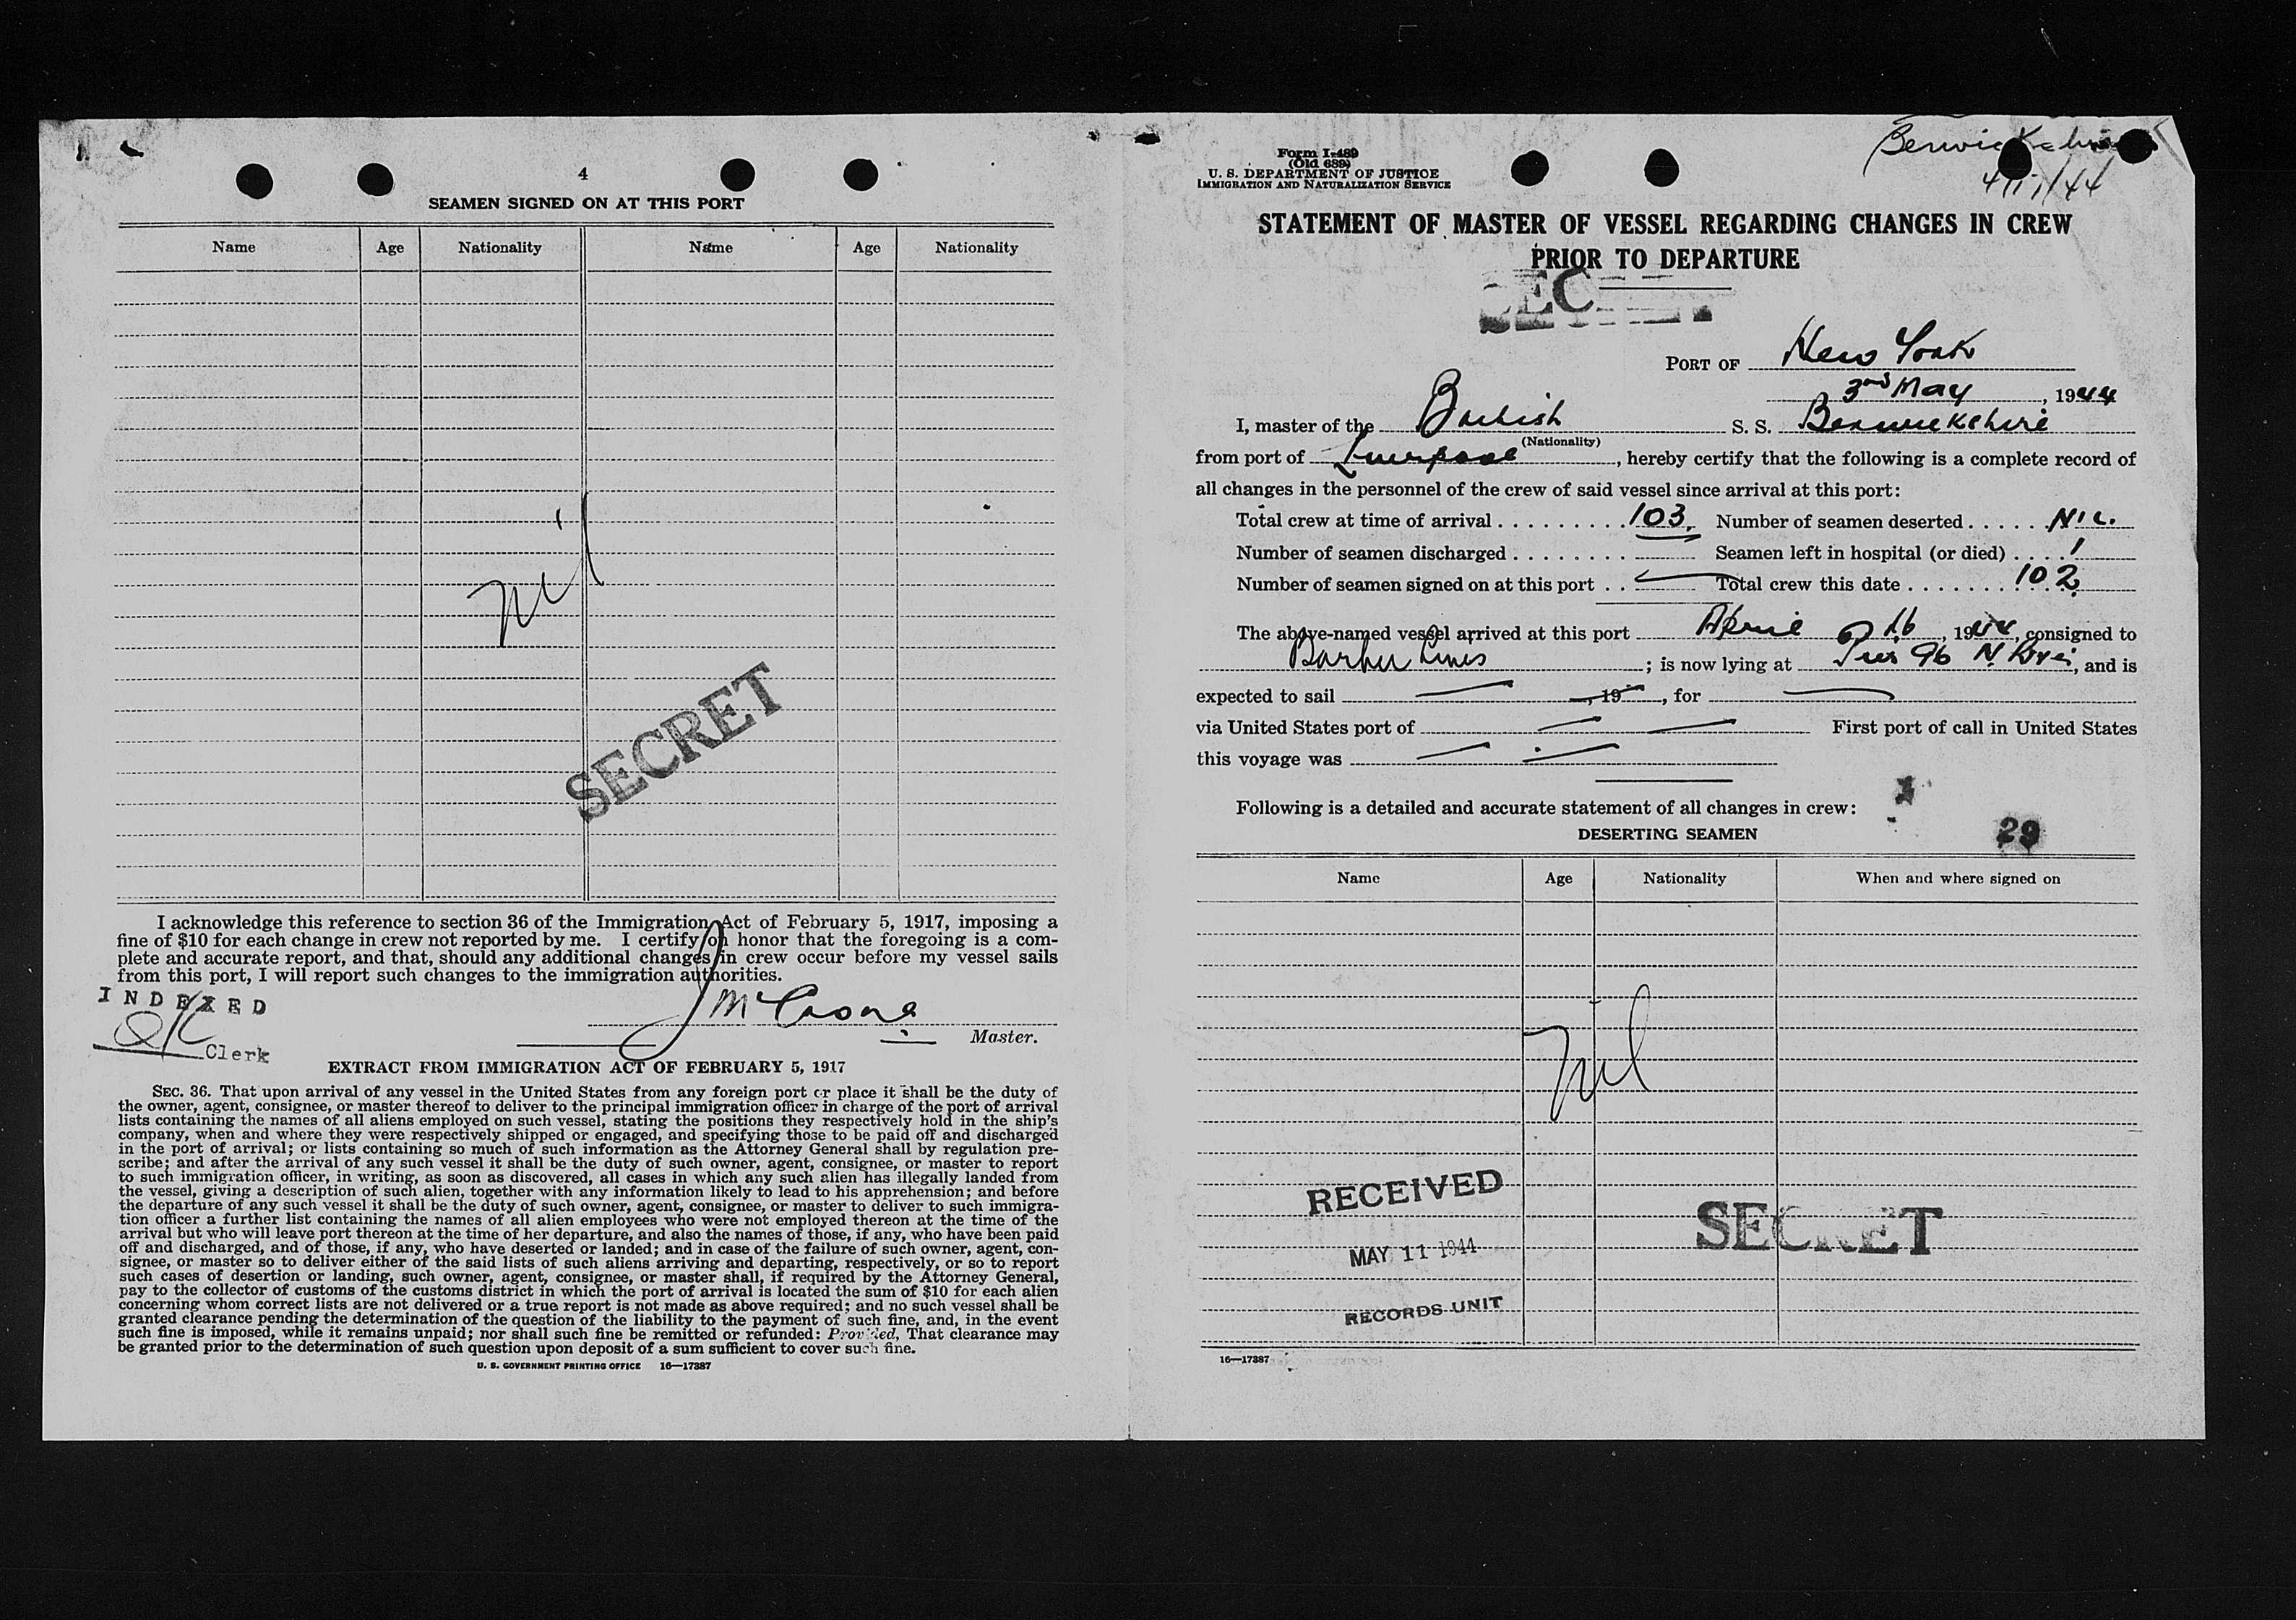 4
SEAMEN SIGNED ON AT THIS PORT
Name Age Nationality Name Age Nationality
nil
SECRET
I acknowledge this reference to section 36 of the Immigration Act of February 5, 1917, imposing a
fine of $10 for each change in crew not reported by me. I certify on honor that the foregoing is a com-
plete and accurate report, and that, should any additional changes in crew occur before my vessel sails
from this port, I will report such changes to the immigration authorities.
INDEXED
Clerk
Master.
EXTRACT FROM IMMIGRATION ACT OF FEBRUARY 5, 1917
SEC. 36. That upon arrival of any vessel in the United States from any foreign port or place it shall be the duty of
the owner, agent, consignee, or master thereof to deliver to the principal immigration officer in charge of the port of arrival
lists containing the names of all aliens employed on such vessel, stating the positions they respectively hold in the ship's
company, when and where they were respectively shipped or engaged, and specifying those to be paid off and discharged
in the port of arrival; or lists containing so much of such information as the Attorney General shall by regulation pre-
scribe; and after the arrival of any such vessel it shall be the duty of such owner, agent, consignee, or master to report
to such immigration officer, in writing, as soon as discovered, all cases in which any such alien has illegally landed from
the vessel, giving a description of such alien, together with any information likely to lead to his apprehension; and before
the departure of any such vessel it shall be the duty of such owner, agent, consignee, or master to deliver to such immigra-
tion officer a further list containing the names of all alien employees who were not employed thereon at the time of the
arrival but who will leave port thereon at the time of her departure, and also the names of those, if any, who have been paid
off and discharged, and of those, if any, who have deserted or landed; and in case of the failure of such owner, agent, con-
signee, or master so to deliver either of the said lists of such aliens arriving and departing, respectively, or so to report
such cases of desertion or landing, such owner, agent, consignee, or master shall, if required by the Attorney General,
pay to the collector of customs of the customs district in which the port of arrival is located the sum of $10 for each alien
concerning whom correct lists are not delivered or a true report is not made as above required; and no such vessel shall be
granted clearance pending the determination of the question of the liability to the payment of such fine, and, in the event
such fine is imposed, while it remains unpaid; nor shall such fine be remitted or refunded: Provided, That clearance may
be granted prior to the determination of such question upon deposit of a sum sufficient to cover such fine.
U. S. GOVERNMENT PRINTING OFFICE 16—17387
Form I-489
(Old 689)
U. S. DEPARTMENT OF JUSTICE
IMMIGRATION AND NATURALIZATION SERVICE
STATEMENT OF MASTER OF VESSEL REGARDING CHANGES IN CREW
PRIOR TO DEPARTURE
SECRET
PORT OF New York
3rd May, 1944
I, master of the British S. S. Berwickshire
(Nationality)
from port of Liverpool, hereby certify that the following is a complete record of
all changes in the personnel of the crew of said vessel since arrival at this port:
Total crew at time of arrival . . . . . . . . . 103. Number of seamen deserted . . . . . Nil.
Number of seamen discharged . . . . . . . . Seamen left in hospital (or died) . . . . 1
Number of seamen signed on at this port . . Total crew this date . . . . . . . . 102
The above-named vessel arrived at this port April 16, 1944, consigned to
Barber Lines; is now lying at Pier 96 N River, and is
expected to sail —, 19—, for —
via United States port of — — First port of call in United States
this voyage was — —
Following is a detailed and accurate statement of all changes in crew:
29
DESERTING SEAMEN
Name Age Nationality When and where signed on
Nil
RECEIVED
MAY 11 1944
RECORDS UNIT
SECRET
16—17387